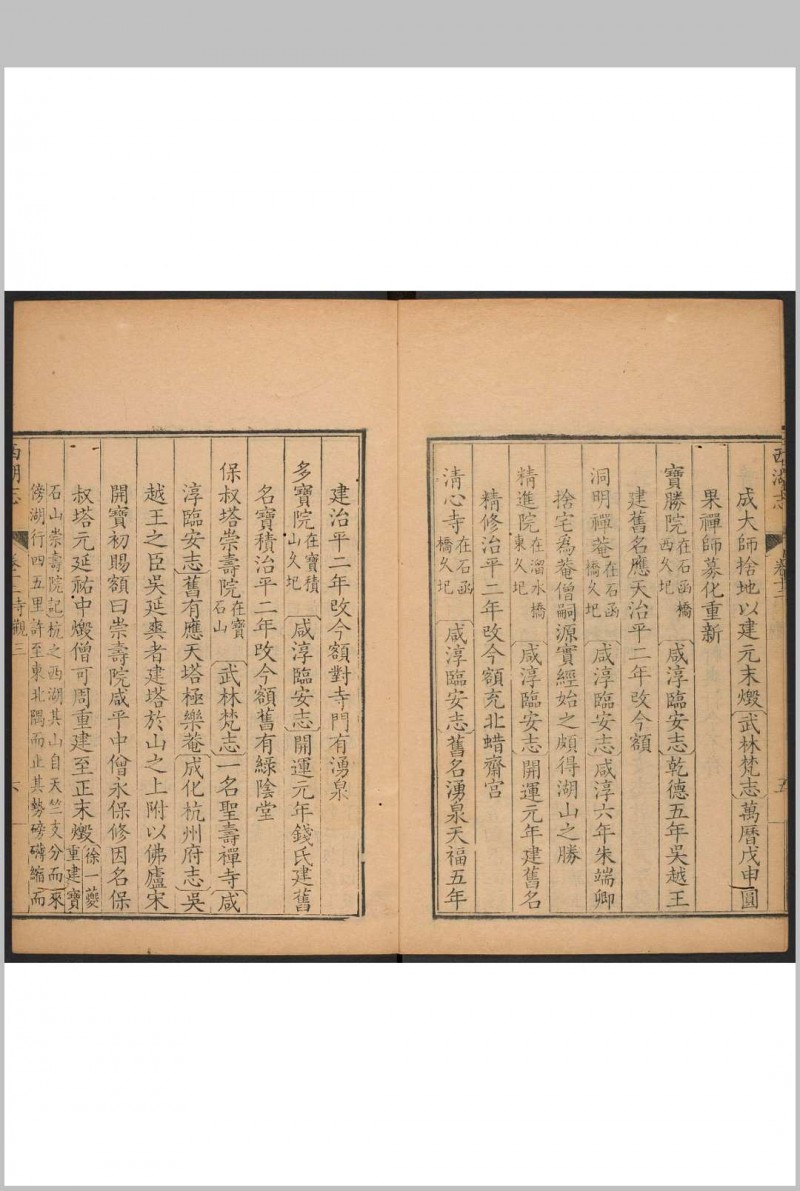 西湖志
卷十二
五
成大師捨地以建元末燬〔武林梵志〕萬曆戊申圓
果禪師募化重新
寶勝院在石函橋西久圮〔咸淳臨安志〕乾德五年吳越王
建舊名應天治平二年改今額
洞明禪菴在石函橋久圮〔咸淳臨安志〕咸淳六年朱端卿
捨宅為菴僧嗣源實經始之頗得湖山之勝
精進院在溜水橋東久圮〔咸淳臨安志〕開運元年建舊名
精修治平二年改今額充北蜡齋宮
清心寺在石函橋久圮〔咸淳臨安志〕舊名湧泉天福五年
建治平二年改今額對寺門有湧泉
多寶院在寶積山久圮〔咸淳臨安志〕開運元年錢氏建舊
名寶積治平二年改今額舊有綠陰堂
保叔塔崇壽院在寶石山〔武林梵志〕一名聖壽禪寺〔咸
淳臨安志〕舊有應天塔極樂菴〔成化杭州府志〕吳
越王之臣吳延爽者建塔於山之上附以佛廬宋
開寶初賜額曰崇壽院咸平中僧永保修因名保
叔塔元延祐中燬僧可周重建至正末燬〔徐一夔重建寶
石山崇壽院記杭之西湖其山自天竺支分而來
傍湖行四五里許至東北隅而止其勢磅礴縮而
西湖志
卷十二寺觀三
六